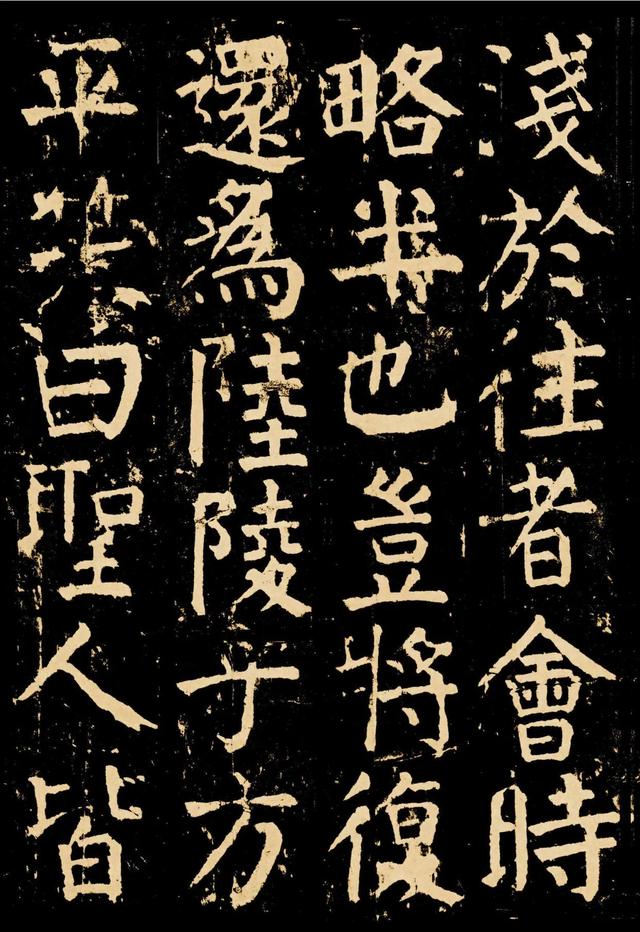 淺於往者會時
略半也豈將復
還爲陸陵乎方
平笑曰聖人皆